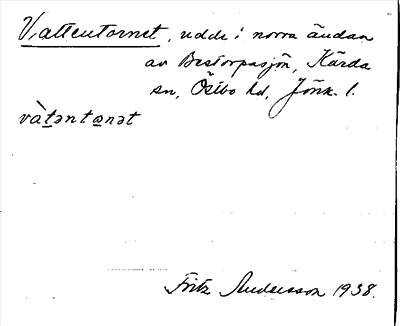 Vattentornet, udde i norra ändan
av Bestorpasjön, Kärda
sn, Östbo hd, Jönk. l.
và̀təntɷnət
Fritz Andersson 1938.